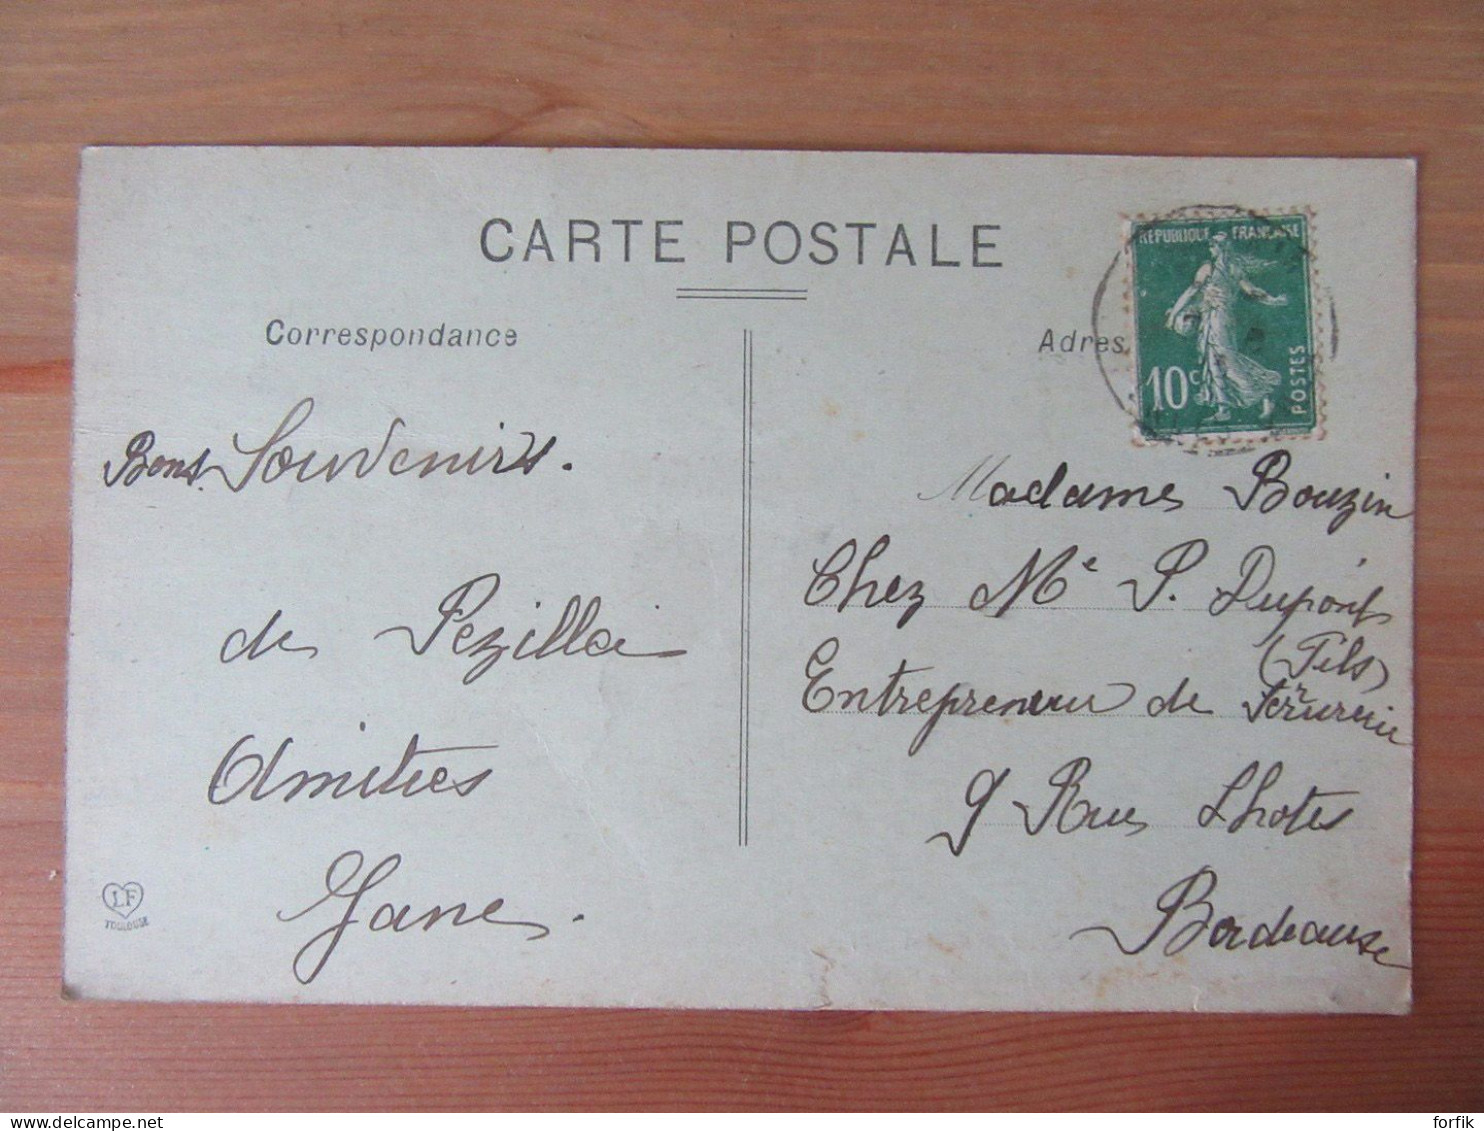 CARTE POSTALE
Correspondance
Adres
RÉPUBLIQUE FRANÇAISE
10c
POSTES
Bons Souvenirs.
de Pezilla
Amities
Jane.
LF
TOULOUSE
Madame Bouzin
Chez Me P. Dupont
(Fils)
Entrepreneur de Serrurerie
9 Rue Lhote
Bordeaux
delcampe.net
forfik